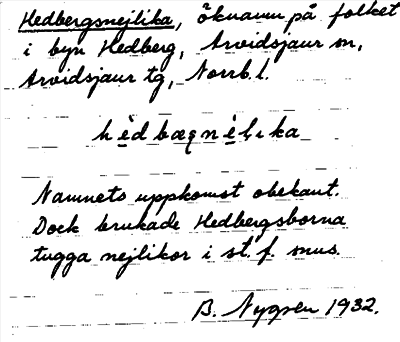 Hedbergsnejlika, öknamn på folket
i byn Hedberg, Arvidsjaur sn,
Arvidsjaur tg, Norrb. l.
hèdbærɡnèlika
Namnets uppkomst obekant.
Dock brukade Hedbergsborna
tugga nejlikor i st. f. snus.
B. Nygren 1932.